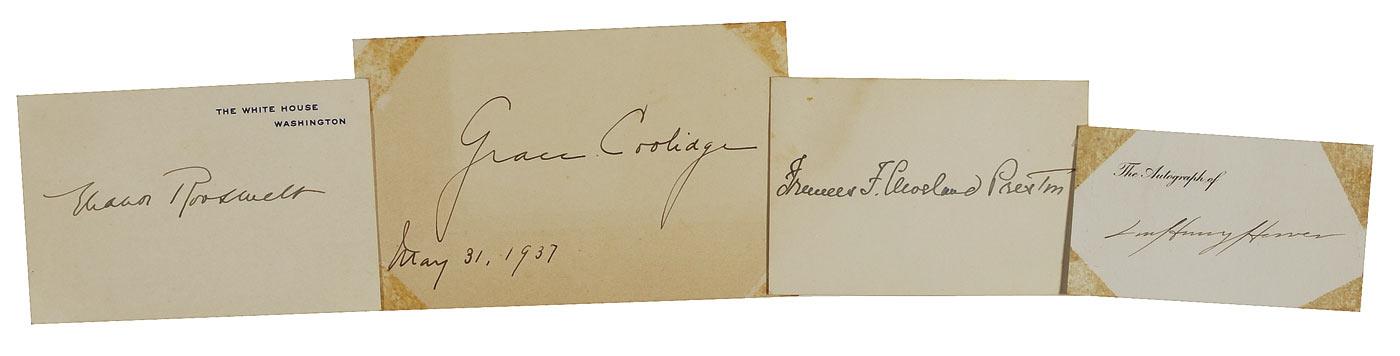 THE WHITE HOUSE
WASHINGTON
Eleanor Roosevelt
Grace Coolidge
May 31, 1937
Frances F. Cleveland Preston
The Autograph of
Lou Henry Hoover